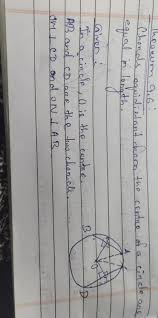 Theorem 9.6:
Chords equidistant from the centre of a circle are
equal in length.
Given:
In a circle, O is the centre
AB and CD are the two chords.
OM ⊥ CD and ON ⊥ AB
A
C
O
B
D